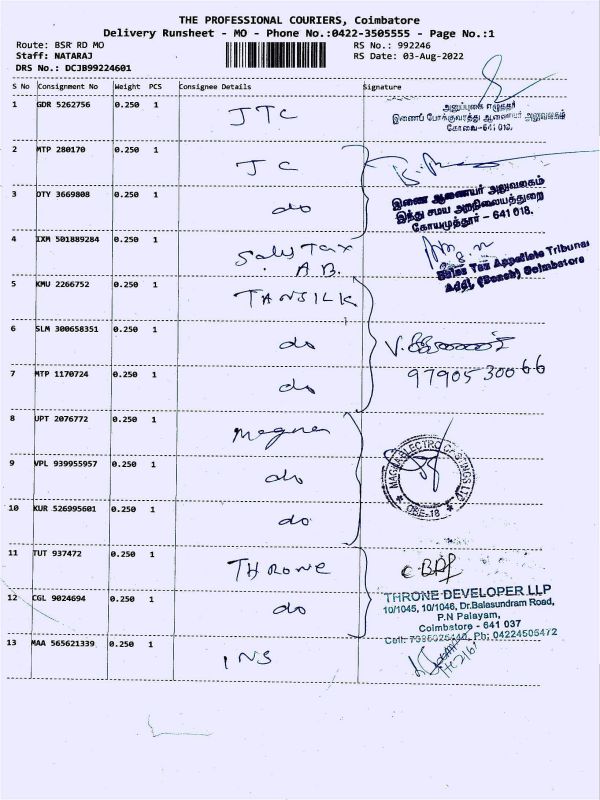 THE PROFESSIONAL COURIERS, Coimbatore
Delivery Runsheet - MO - Phone No.:0422-3505555 - Page No.:1
Route: BSR RD MO
RS No.: 992246
Staff: NATARAJ
RS Date: 03-Aug-2022
DRS No.: DCJB99224601
S No Consignment No Weight PCS Consignee Details Signature
1 GDR 5262756 0.250 1 JTC
அனுப்புகை எழுத்தர்
இணைப் போக்குவரத்து ஆணையர் அலுவலகம்
கோவை-641 018.
2 MTP 280170 0.250 1 JC
3 OTY 3669808 0.250 1 do
இணை ஆணையர் அலுவலகம்
இந்து சமய அறநிலையத்துறை
கோயமுத்தூர் - 641 018.
4 IXM 501889284 0.250 1 Sales Tax
A.B.
Sales Tax Appellate Tribunal
Addl. (Bench) Coimbatore
5 KMU 2266752 0.250 1 TANSILK
6 SLM 300658351 0.250 1 do
7 MTP 1170724 0.250 1 do
97905 30066
8 UPT 2076772 0.250 1 Magna
9 VPL 939955957 0.250 1 do
MAGNA ELECTRO CASTINGS LTD
CBE-18
10 KUR 526995601 0.250 1 do
11 TUT 937472 0.250 1 THRONE
12 CGL 9024694 0.250 1 do
THRONE DEVELOPER LLP
10/1045, 10/1046, Dr.Balasundram Road,
P.N Palayam,
Coimbatore - 641 037
Ph: 04224505472
13 MAA 565621339 0.250 1 INS